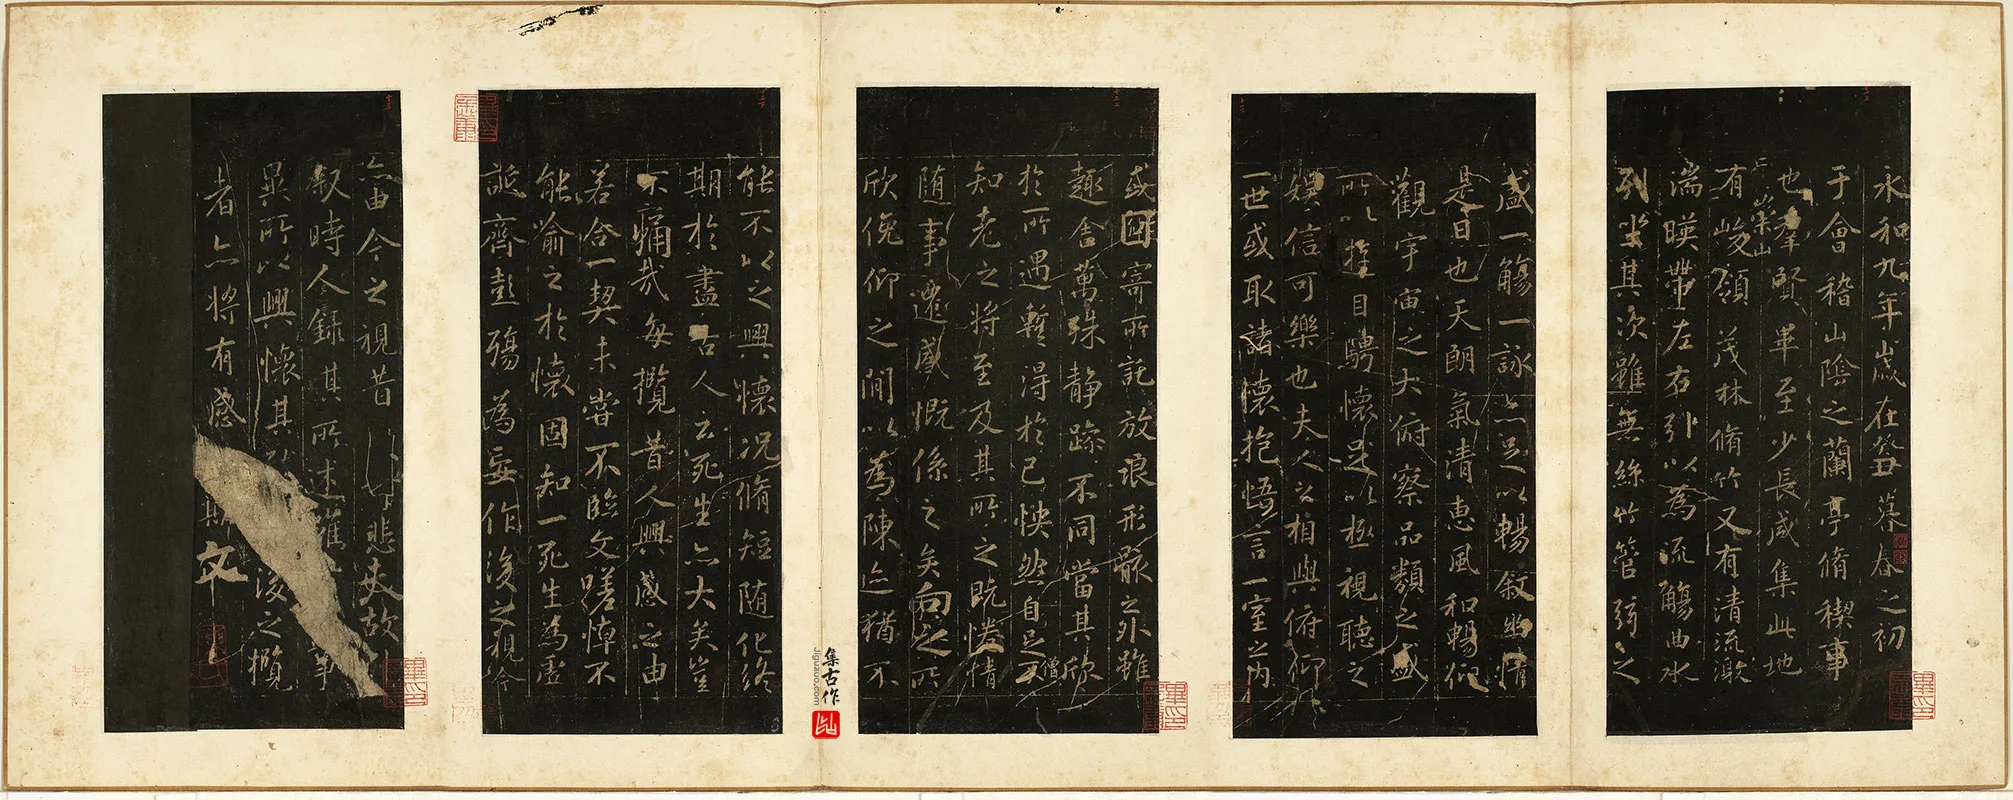 永和九年歲在癸丑暮春之初
于會稽山陰之蘭亭脩禊事
也羣賢畢至少長咸集此地
有崇山峻領茂林脩竹又有清流激
湍暎帶左右引以為流觴曲水
列坐其次雖無絲竹管弦之
盛一觴一詠亦足以暢敘幽情
是日也天朗氣清惠風和暢仰
觀宇宙之大俯察品類之盛
所以遊目騁懷足以極視聽之
娛信可樂也夫人之相與俯仰
一世或取諸懷抱悟言一室之內
或因寄所託放浪形骸之外雖
趣舍萬殊靜躁不同當其欣
僧
於所遇暫得於己怏然自足不
知老之將至及其所之既惓情
隨事遷感慨係之矣向之所
欣俛仰之間以為陳迹猶不
能不以之興懷況脩短隨化終
期於盡古人云死生亦大矣豈
不痛哉每攬昔人興感之由
若合一契未嘗不臨文嗟悼不
能喻之於懷固知一死生為虛
誕齊彭殤為妄作後之視今
亦由今之視昔悲夫故列
敘時人錄其所述雖事
異所以興懷其後之攬
者亦將有感斯文
集古作
Jiguzuo.com